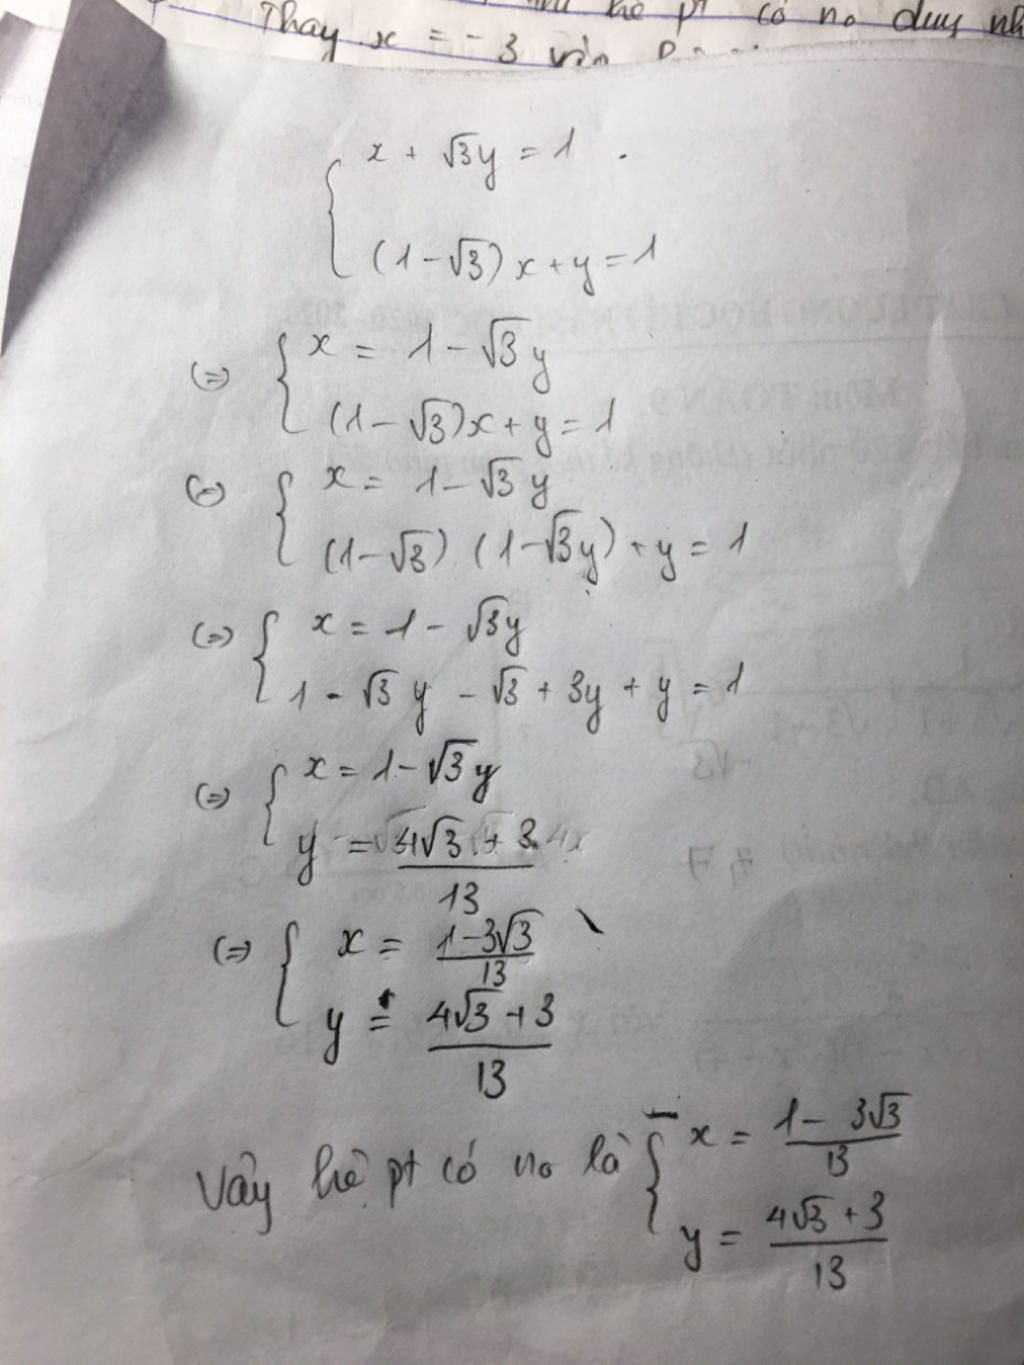 Thay x = -3 vào
hệ pt có no duy nh
{ x + √3y = 1 .
(1-√3)x + y = 1
(=) { x = 1 - √3y
(1-√3)x + y = 1
(=) { x = 1-√3y
(1-√3) (1-√3y) + y = 1
(=) { x = 1 - √3y
1 - √3y - √3 + 3y + y = 1
(=) { x = 1-√3y
y = 4√3 + 3
13
(=) { x = 1-3√3
13
y = 4√3 + 3
13
Vậy hệ pt có no là { x = 1 - 3√3
13
y = 4√3 + 3
13